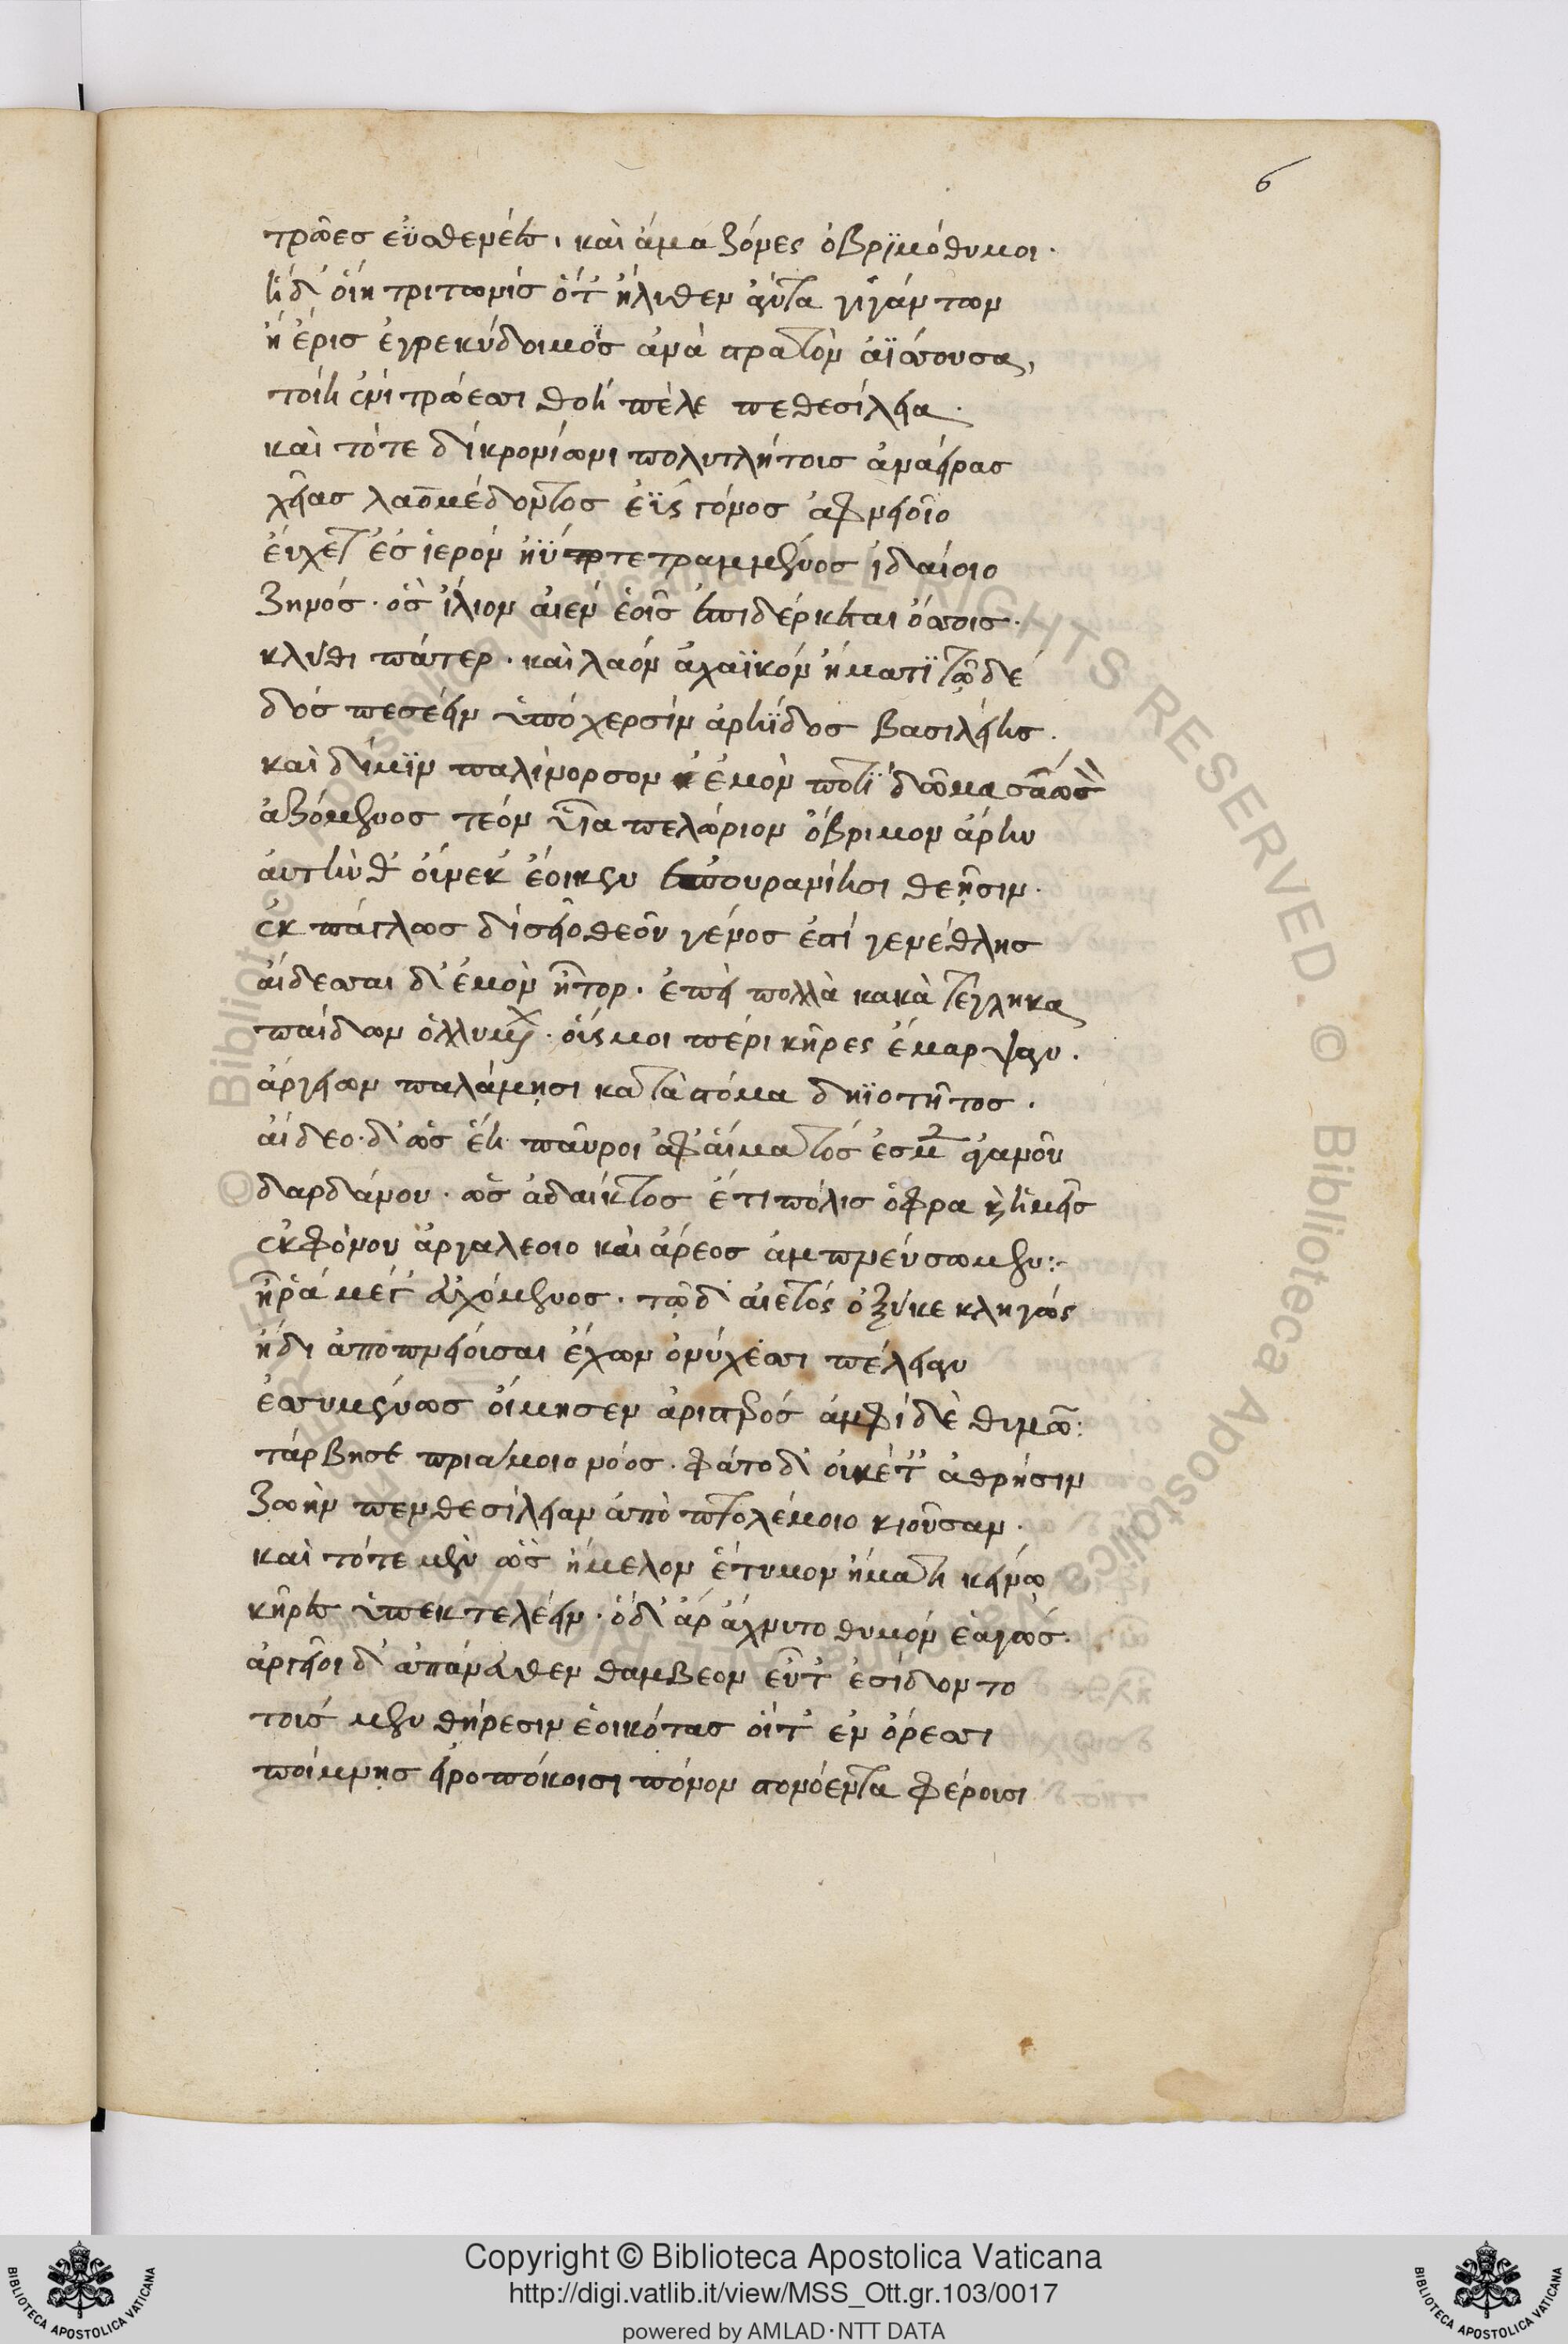 τρῶες εὐϋσθενέες, καὶ ἀμαζόνες ὀβρϊμόθυμοι.
ἡ δ' οἵη τριτωνίς ὅτ' ἤλυθεν ἄντα γιγάντων
ἡ ἔρις ἐγρεκύδοιμος ἀνὰ στρατὸν ἀΐσσουσα,
τοίη ἐνὶ τρώεσσι θοὴ πέλε πεθεσίλεια.
καὶ τότε δὴ κρονίωνι πολυτλήτοις ἀναείρας
χεῖας λαομέδοντος ἐῢς γόνος ἀφνειοῖο
εὔχετ' ἐς ἱερὸν τετραμμένος ἰδαίοιο
ζηνός. ὃς ἴλιον αἰὲν ἑοῖς ἐπιδέρκεται ὄσσοις.
κλῦθι πάτερ. καὶ λαὸν ἀχαϊκὸν ἤματϊ τῷδέ
δός πεσέειν ὑπὸ χερσὶν ἀρηΐδος βασιλείης.
καὶ δήμϊν παλίνορσον ἐμὸν ποτῒ δῶμα
ἁζόμενος τεὸν υἷα πελώριον ὄβριμον ἄρην
αὐτήν θ' οὕνεκ' ἔοικεν ἐπουρανίησι θεῇσιν.
ἐκπάγλως δὴ σεῖο θεοῦ γένος ἐστὶ γενέθλης
αἴδεσσαι δ' ἐμὸν ἦτορ. ἐπεὶ πολλὰ κακὰ τέτληκα
παίδων ὀλλυμένων. οὕς μοι πέρι κῆρες ἔμαρψαν.
ἀργείων παλάμῃσι κατὰ στόμα δηϊοτῆτος.
αἴδεο. δ' ὡς ἔτι παῦροι ἀφ' αἵματός ἐσμεν ἀγανοῦ
δαρδάνου. ὡς ἀδαίκτος ἔτι πόλις ὄφρα καὶ ἡμεῖς
ἐκ φόνου ἀργαλεοιο καὶ ἄρεος ἀμπνεύσωμεν:-
ἦ ῥά μέγ' εὐχόμενος. τῷ δ' αἰετός ὀξὺ κεκληγώς
ἤδη ἀποπνείοισαν ἔχων ὀνύχεσσι πέλειαν
ἐσσυμένως οἴμησεν ἀριστερός ἀμφὶ δὲ θυμῷ:
τάρβησε πριάμοιο νόος. φάτο δ' οὐκέτ' ἀθρήσιν
ζωὴν πενθεσίλειαν ἀπὸ πτολέμοιο κιοῦσαν.
καὶ τότε μὲν ὡς ἤμελον ἔτυμον ἤματι κείνω
κῆρες ὑπεκτελέειν. ὁ δ' ἄρ' ἄχνυτο θυμὸν ἐαγώς.
ἀργεῖοι δ' ἀπάνευθεν θαμβεον εὖτ' ἐσίδοντο
τοὺς μὲν θήρεσιν ἐοικότας οἵτ' ἐν ὄρεσσι
ποίμνῃς εἰροπόκοισι πόνον στονόεντα φέροισι
6
Copyright © Biblioteca Apostolica Vaticana
http://digi.vatlib.it/view/MSS_Ott.gr.103/0017
powered by AMLAD·NTT DATA
BIBLIOTECA APOSTOLICA VATICANA
BIBLIOTECA APOSTOLICA VATICANA